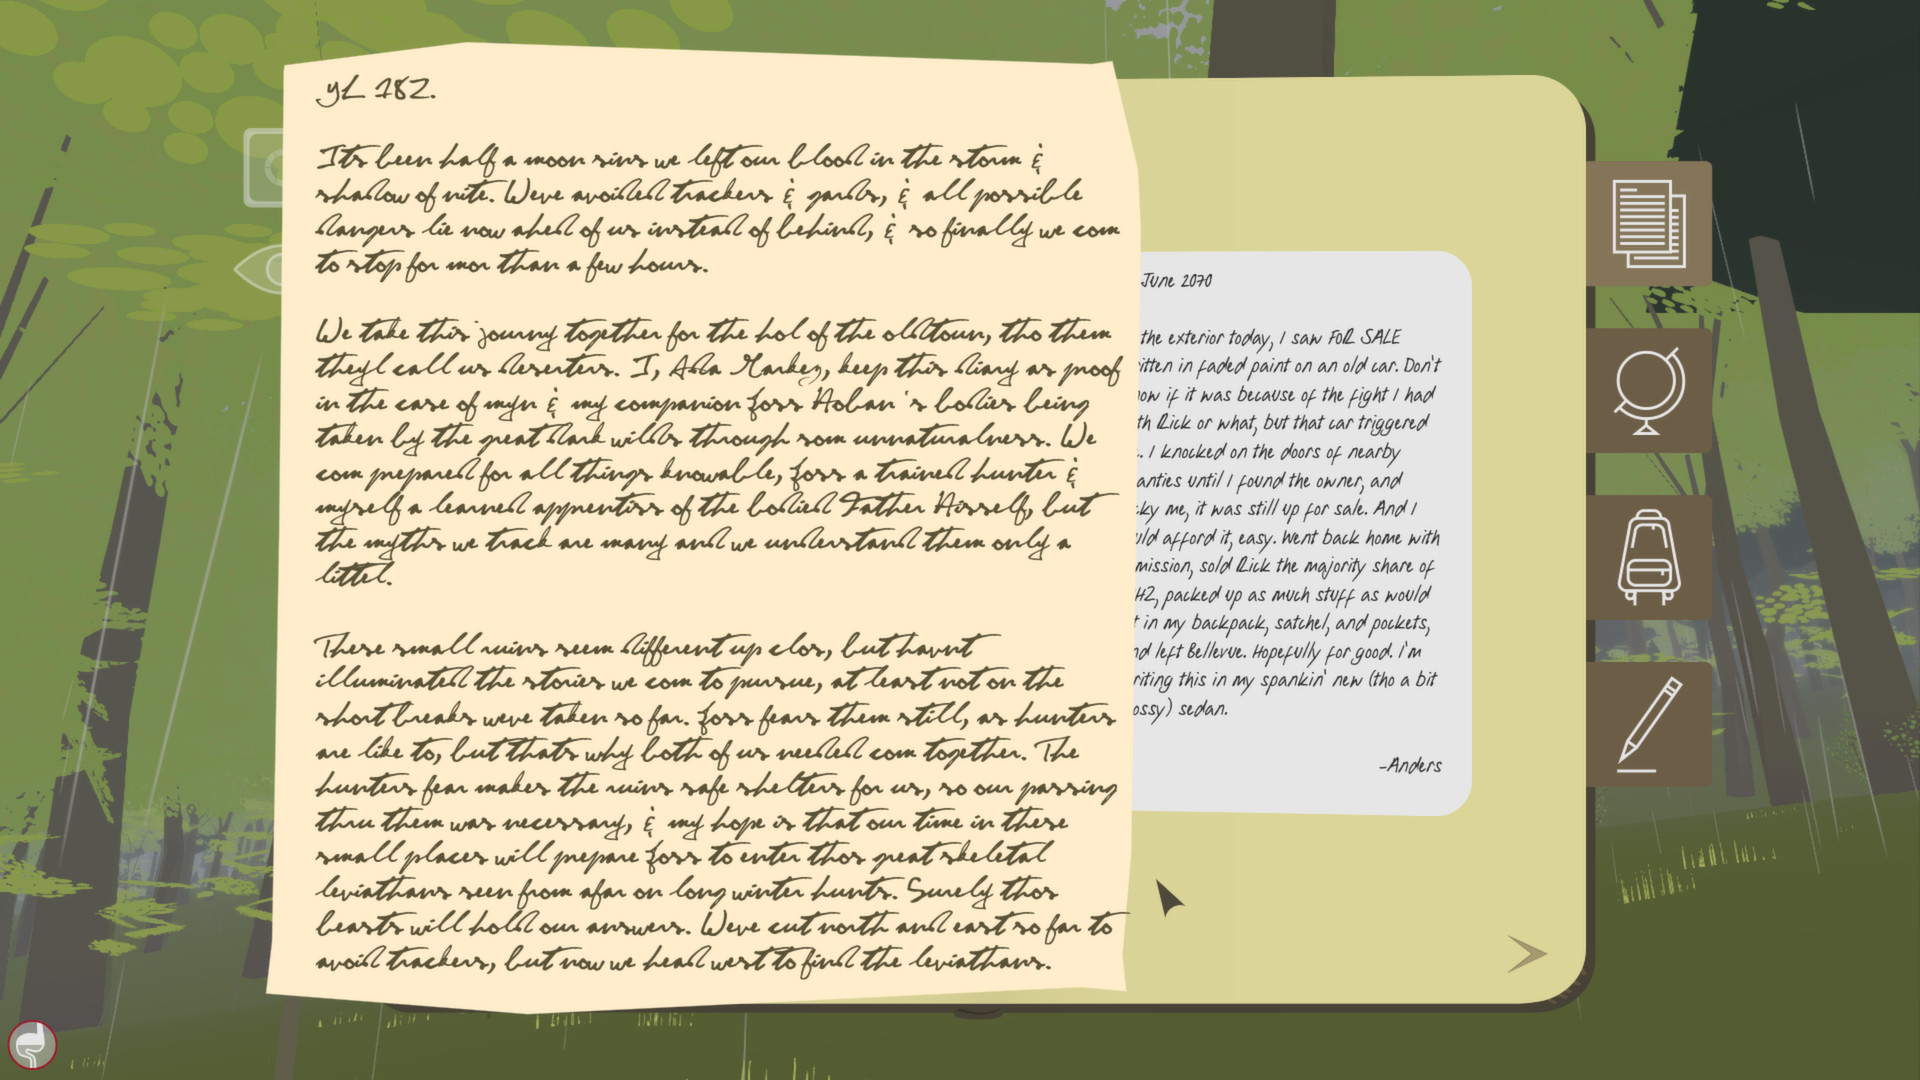 yL 182.
Its been half a moon sins we left our blood in the storm &
shadow of nite. Weve avoided trackers & gards, & all possible
dangers lie now ahed of us insted of behind, & so finally we com
to stop for mor than a few hours.
We take this journy together for the hol of the oldtoun, tho them
theyl call us deserters. I, Ada Markez, keep this diary as proof
in the case of myn & my companion Joss Hoban's bodies being
taken by the great dark wilds through som unnaturalness. We
com prepared for all things knowable, Joss a trained hunter &
myself a learned apprentiss of the bodied Father Hisself, but
the myths we track are many and we understand them only a
littel.
These small ruins seem different up clos, but havnt
illuminated the stories we com to pursue, at least not on the
short breaks weve taken so far. Joss fears them still, as hunters
are like to, but thats why both of us needed com together. The
hunters fear makes the ruins safe shelters for us, so our passing
thru them was necessary, & my hope is that our time in these
small places will prepare Joss to enter thos great skeletal
leviathans seen from afar on long winter hunts. Surely thos
beasts will hold our answers. Weve cut north and east so far to
avoid trackers, but now we head west to find the leviathans.
June 2070
the exterior today, I saw FOR SALE
itten in faded paint on an old car. Don't
ow if it was because of the fight I had
th Rick or what, but that car triggered
. I knocked on the doors of nearby
anties until I found the owner, and
ky me, it was still up for sale. And I
uld afford it, easy. Went back home with
mission, sold Rick the majority share of
H2, packed up as much stuff as would
t in my backpack, satchel, and pockets,
nd left Bellevue. Hopefully for good. I'm
riting this in my spankin' new (tho a bit
ossy) sedan.
-Anders